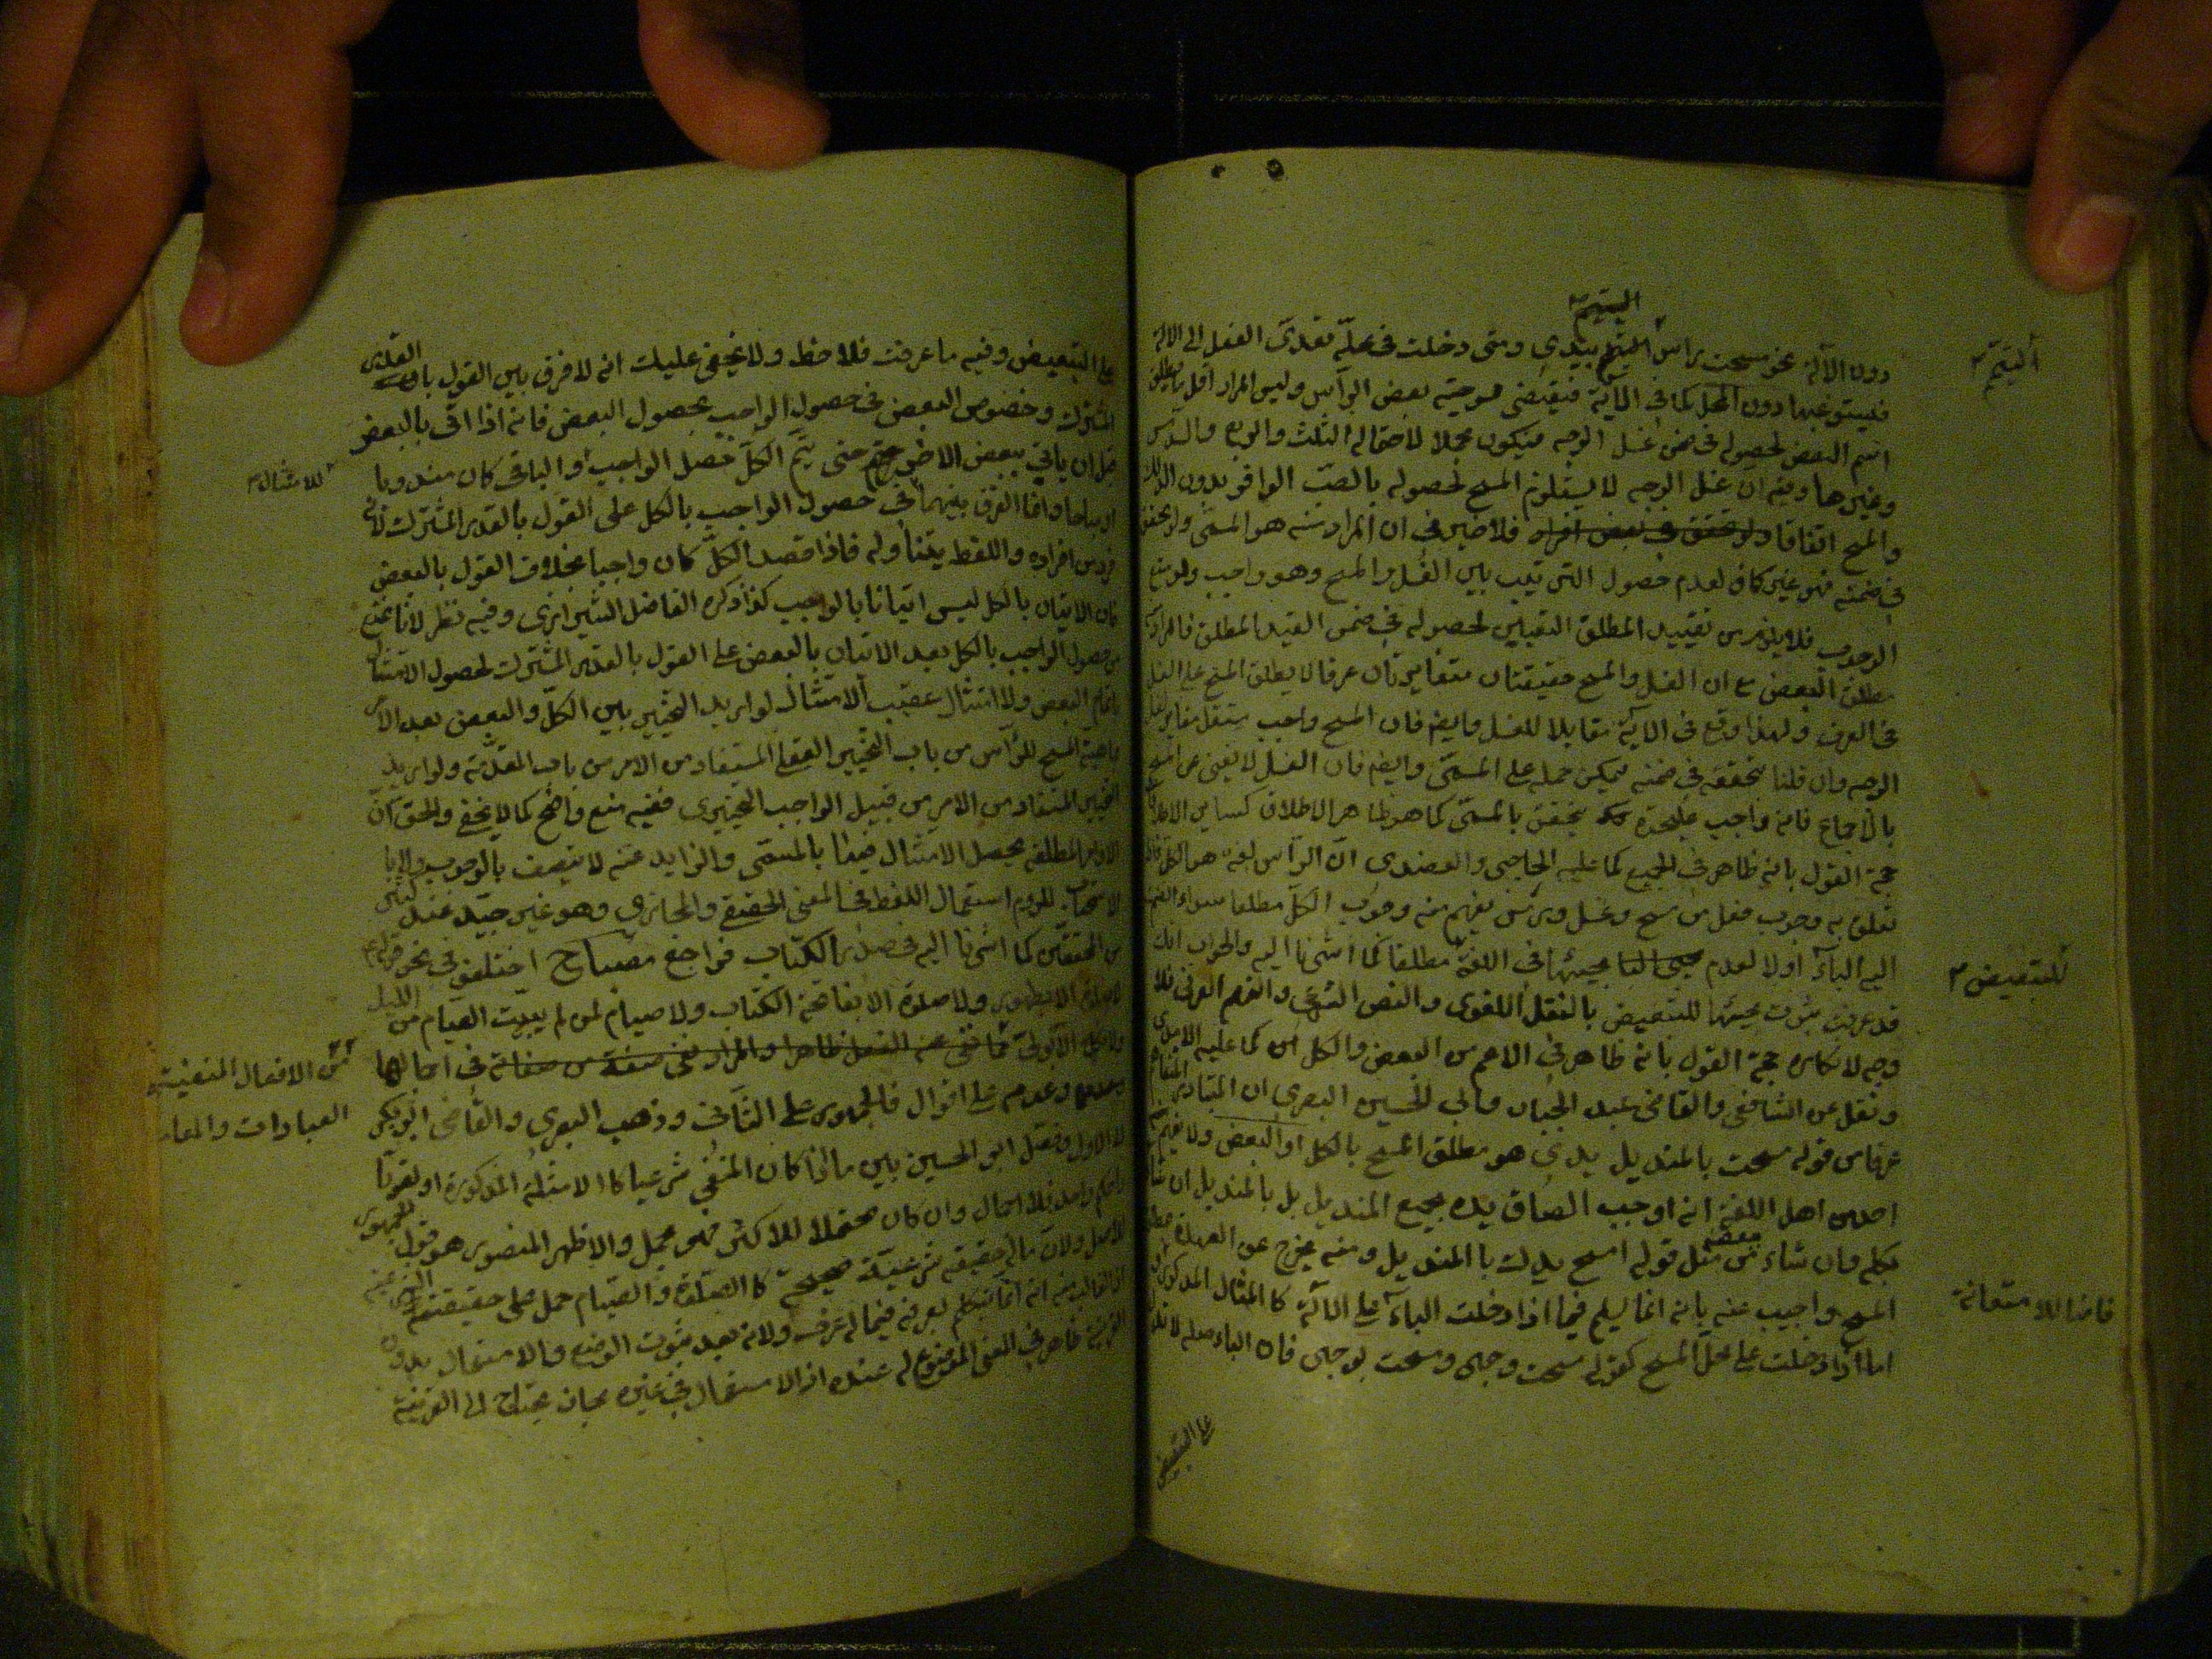 اليتيم
دون الآلة نحو مسحت براس اليتيم بيدي ومتى دخلت في محله تعدى الفعل الى الالة
فيستوعبها دون المحل كما في الآية فيقتضي ممسوحية بعض الراس وليس المراد اقل ما يطلق
اسم البعض لحصوله في ضمن غسل الوجه فيكون مجملا لاحتماله الثلث والربع والسدس
وغيرها وفيه ان غسل الوجه لا يستلزم المسح لحصوله بالصب الوافر بدون الدلك
والمسح اتفاقا فلا ضير في ان المراد منه هو المسمى ولو تحقق
في ضمنه فهو غير كاف لعدم حصول الترتيب بين الغسل والمسح وهو واجب ولو منع
الوجوب فلا يلزم من تقييد المطلق التعيين لحصوله في ضمن المقيد المطلق فالمراد
مطلق البعض مع ان الغسل والمسح حقيقتان متغايرتان عرفا لا يطلق المسح على الغسل
في العرف ولهذا وقع في الآية مقابلا للغسل وايضا فان المسح واجب مستقل مغاير لغسل
الوجه وان قلنا بتحققه في ضمنه فيمكن حمله على المسمى وايضا فان الغسل لا يغني عن المسح
بالاجماع فانه واجب عليحدة يتحقق بالمسمى كما هو ظاهر الاطلاق كساير
حجة القول بانه ظاهر في الجميع كما عليه الحاجبي والعضدي ان الراس لغة هو الكل
تعلق به وجوب فعل من مسح وغسل يفهم منه وجوب الكل مطلقا سواء انضم
اليه الباء او لا لعدم مجيئها في اللغة مطلقا كما اشرنا اليه والجواب انك
قد عرفت ثبوت مجيئها للتبعيض بالنقل اللغوي والنص الشرعي والفهم العرفي فلا
وجه لانكاره حجة القول بانه ظاهر في الاعم من البعض والكل كما عليه الامدي
ونقل عن الشافعي والقاضي عبد الجبار وابي الحسين البصري ان المتبادر
عرفا من قوله مسحت بالمنديل يدي هو مطلق المسح بالكل او البعض ولا يفهم
احد من اهل اللغة انه اوجب الصاق يده بجميع المنديل بل بالمنديل ان شاء
بكله وان شاء ببعضه مثل قوله امسح يدك بالمنديل ومنه يخرج عن العهدة
المسح واجيب عنه بانه انما يسلم فيما اذا دخلت الباء على الآلة كالمثال المذكور
اما اذا دخلت على محل المسح كقوله مسحت وجهي ومسحت بوجهي فان الباء صلة
على التبعيض
اليتيم
للتبعيض
فانها للاستعانة
على التبعيض وفيه ما عرفت فلاحظ ولا يخفى عليك انه لا فرق بين القول بالقدر
المشترك وخصوص البعض في حصول الواجب بحصول البعض فانه اذا اتى بالبعض
قبل ان ياتي ببعض الاخر حتى يتم الكل حصل الواجب والباقي كان مندوبا
او مباحا واما الفرق بينهما في حصول الواجب بالكل على القول بالقدر المشترك لانه
فرد من افراده واللفظ يتناوله فاذا قصد الكل كان واجبا بخلاف القول بالبعض
فان الاتيان بالكل ليس اتيانا بالواجب كذا ذكره الفاضل الشيرازي وفيه نظر لانا نمنع
من حصول الواجب بالكل بعد الاتيان بالبعض على القول بالقدر المشترك لحصول الامتثال
البعض ولا امتثال عقيب الامتثال لو اريد التخيير بين الكل والبعض بعد الامر
المسح للراس من باب التخيير العقلي المستفاد من الامر من باب المقدمة ولو اريد
التخيير المستفاد من الامر من قبيل الواجب التخييري ففيه منع واضح كما لا يخفى والحق ان
الاوامر المطلقة يحصل الامتثال فيها بالمسمى والزايد عنه لا يتصف بالوجوب
الاستحباب للزوم استعمال اللفظ في المعنى الحقيقي والمجازي وهو غير جيد عند كثير
من المحققين كما اشرنا اليه في صدر الكتاب فراجع مصباح اختلفوا في نحو قوله
لا صلوة الا بطهور ولا صلوة الا بفاتحة الكتاب ولا صيام لمن لم يبيت الصيام من الليل
ولا نكاح الا بولي مما نفي عنه الفعل ظاهرا والمراد نفي صفة من صفاته في اجمالها
وعدمه على اقوال فالجمهور على الثاني وذهب البصري والقاضي ابو بكر
الى الاول وفصل ابو الحسين بين ما اذا كان المنفي شرعيا كالامثلة المذكورة او لغويا
واحد فلا اجمال وان كان محتملا للاكثر فهو مجمل والاظهر المنصور هو قول الجمهور
للاصل ولان ماله حقيقة شرعية صحيحة كالصلوة والصيام حمل على حقيقته
الغالب منه انه انما يتكلم بعرفه فيما له عرف ولانه بعد ثبوت الوضع والاستعمال بدون
القرينة ظاهر في المعنى الموضوع له عنده اذ الاستعمال في غيره مجاز يحتاج الى القرينة
للامتثال
من الافعال المنفية
العبادات والمعا